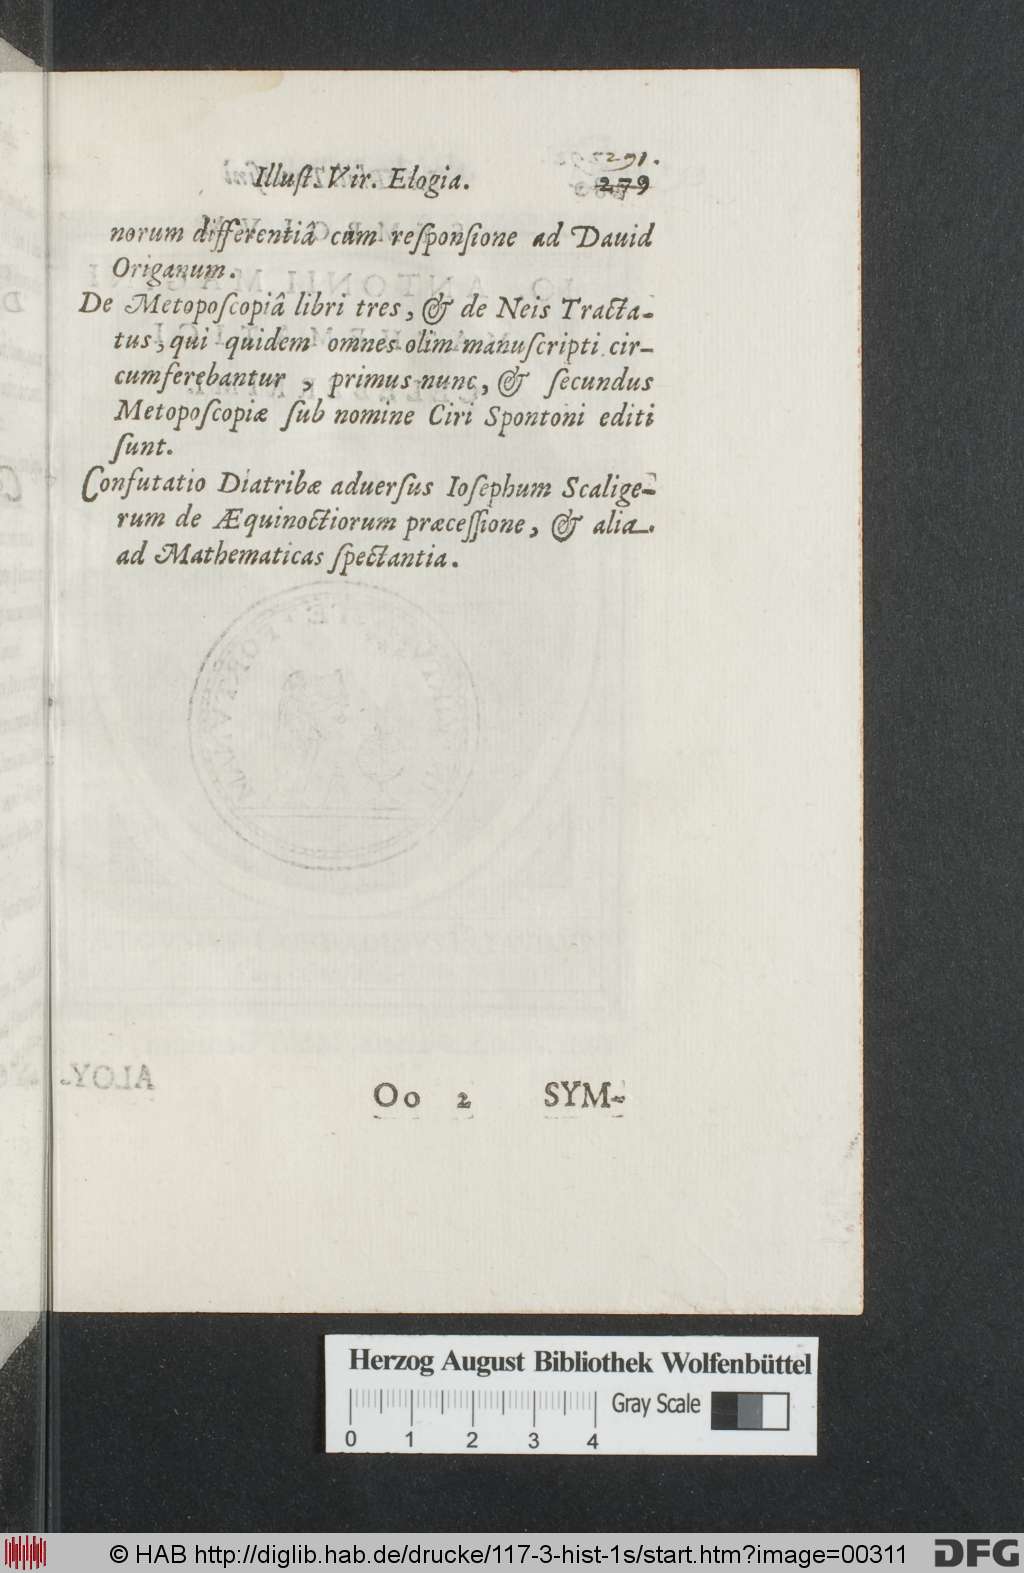 291.
Illuſt. Vir. Elogia. 279
norum differentiâ cum reſponſione ad Dauid
Origanum.
De Metopoſcopiâ libri tres, & de Neis Tracta-
tus, qui quidem omnes olim manuſcripti cir-
cumferebantur, primus nunc, & ſecundus
Metopoſcopiæ ſub nomine Ciri Spontoni editi
ſunt.
Confutatio Diatribæ aduerſus Ioſephum Scalige-
rum de Æquinoctiorum præceſſione, & alia
ad Mathematicas ſpectantia.
Oo 2 SYM-
Herzog August Bibliothek Wolfenbüttel
Gray Scale
0 1 2 3 4
© HAB http://diglib.hab.de/drucke/117-3-hist-1s/start.htm?image=00311
DFG